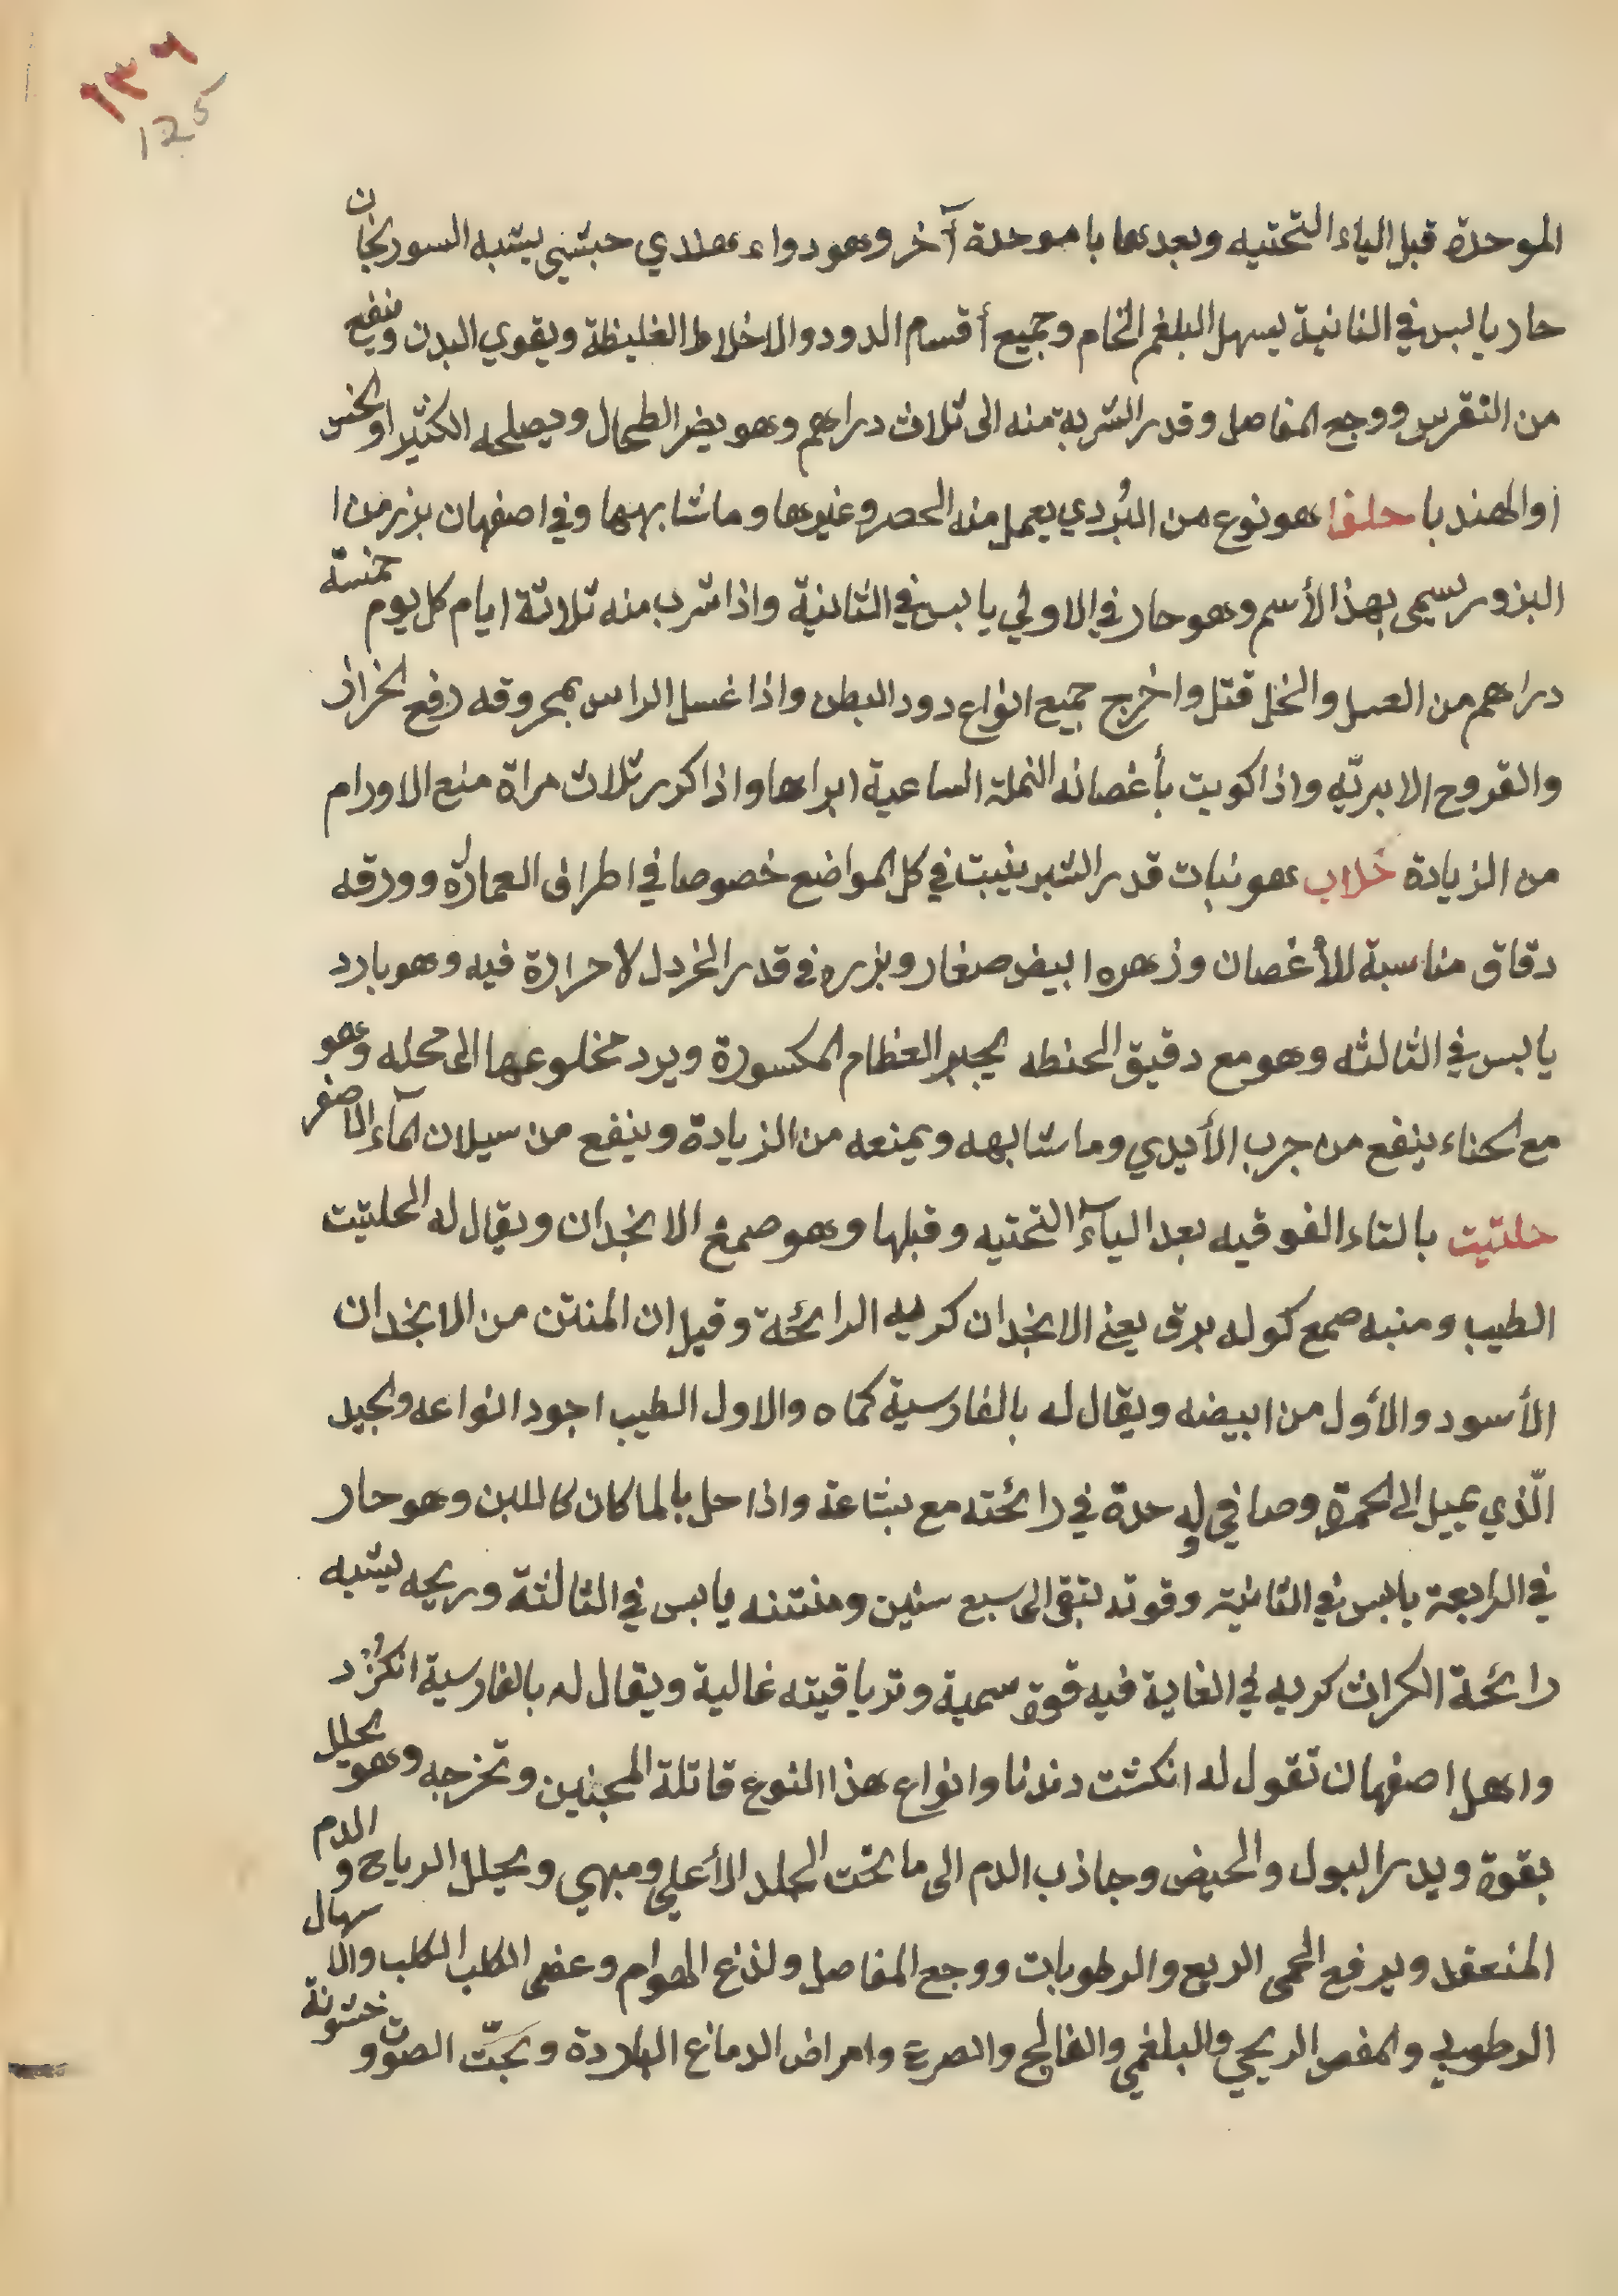 ١٣٦
125
الموحدة قبل الياء التحتيه وبعدها با موحدة آخر وهو دواء هندي حبشي يشبه السورنجان
حار يابس في الثانية يسهل البلغم الخام وجميع أقسام الدود والاخلاط الغليظة ويقوي البدن وينفع
من النقرس ووجع المفاصل وقدر الشربة منه الى ثلاث دراهم وهو يضر الطحال ويصلحه الكثيرا والخس
او الهندبا حلفا هو نوع من البُردي يعمل منه الحصر وغيرها وما شابهها وفي اصفهان بزر من ا
البزور يسمى بهذا الأسم وهو حار في الاولي يابس في الثانية واذا شرب منه ثلاثة ايام كل يوم خمسة
دراهم من العسل والخل قتل واخرج جميع انواع دود البطن واذا غسل الراس بمحروقه دفع الحزاز
والقروح الابريّه واذا كويت بأغصانه النملة الساعية ابراها واذا كرر ثلاث مراة منع الاورام
من الزيادة خلاب هو نبات قدر الشبر ينبت في كل المواضع خصوصا في اطراف العمارة وورقه
دقاق مناسبة للأغصان وزهره ابيض صغار وبزره في قدر الخردل لا حرارة فيه وهو بارد
يابس في الثالثه وهو مع دقيق الحنطه يجبر العظام المكسورة ويرد مخلوعها الى محله وهو
مع الحناء ينفع من جرب الأيدي وما شابهه ويمنعه من الزيادة وينفع من سيلان الماء الاصفر
حلتيت بالتاء الفوقيه بعد الياء التحتيه وقبلها وهو صمغ الانجدان ويقال له الحلتيت
الطيب ومنبه صمع كوله برق يعني الانجدان كريه الرائحة وقيل ان المنتن من الانجدان
الأسود والأول من ابيضه ويقال له بالفارسية كماه والاول الطيب اجود انواعه والجيد
الّذي يميل الى الحمرة وصافي وله حدة في رائحته مع بشاعة واذا حل بالما كان كاللبن وهو حار
في الرابعة يابس في الثانية وقوته تبقى الى سبع سنين ومنتنه يابس في الثالثة وريحه يشبه
رائحة الكراث كريه في الغاية فيه قوة سمية وترياقيته غالية ويقال له بالفارسية انكُزُد
واهل اصفهان تقول له انكشت دندنا وانواع هذا النوع قاتلة الجنين وتخرجه وهو يحلل
بقوة ويدر البول والحيض وجاذب الدم الى ما تحت الجلد الأعلى ومبهي ويحلل الرياح والدم
المنعقد ويرفع الحمى الربع والرطوبات ووجع المفاصل ولذع الهوام وعض الكلب الكلب والاسهال
الرطوبي والمغص الريحي والبلغمي والفالج والصرع وامراض الدماغ الباردة وبحّت الصوت وخشونة